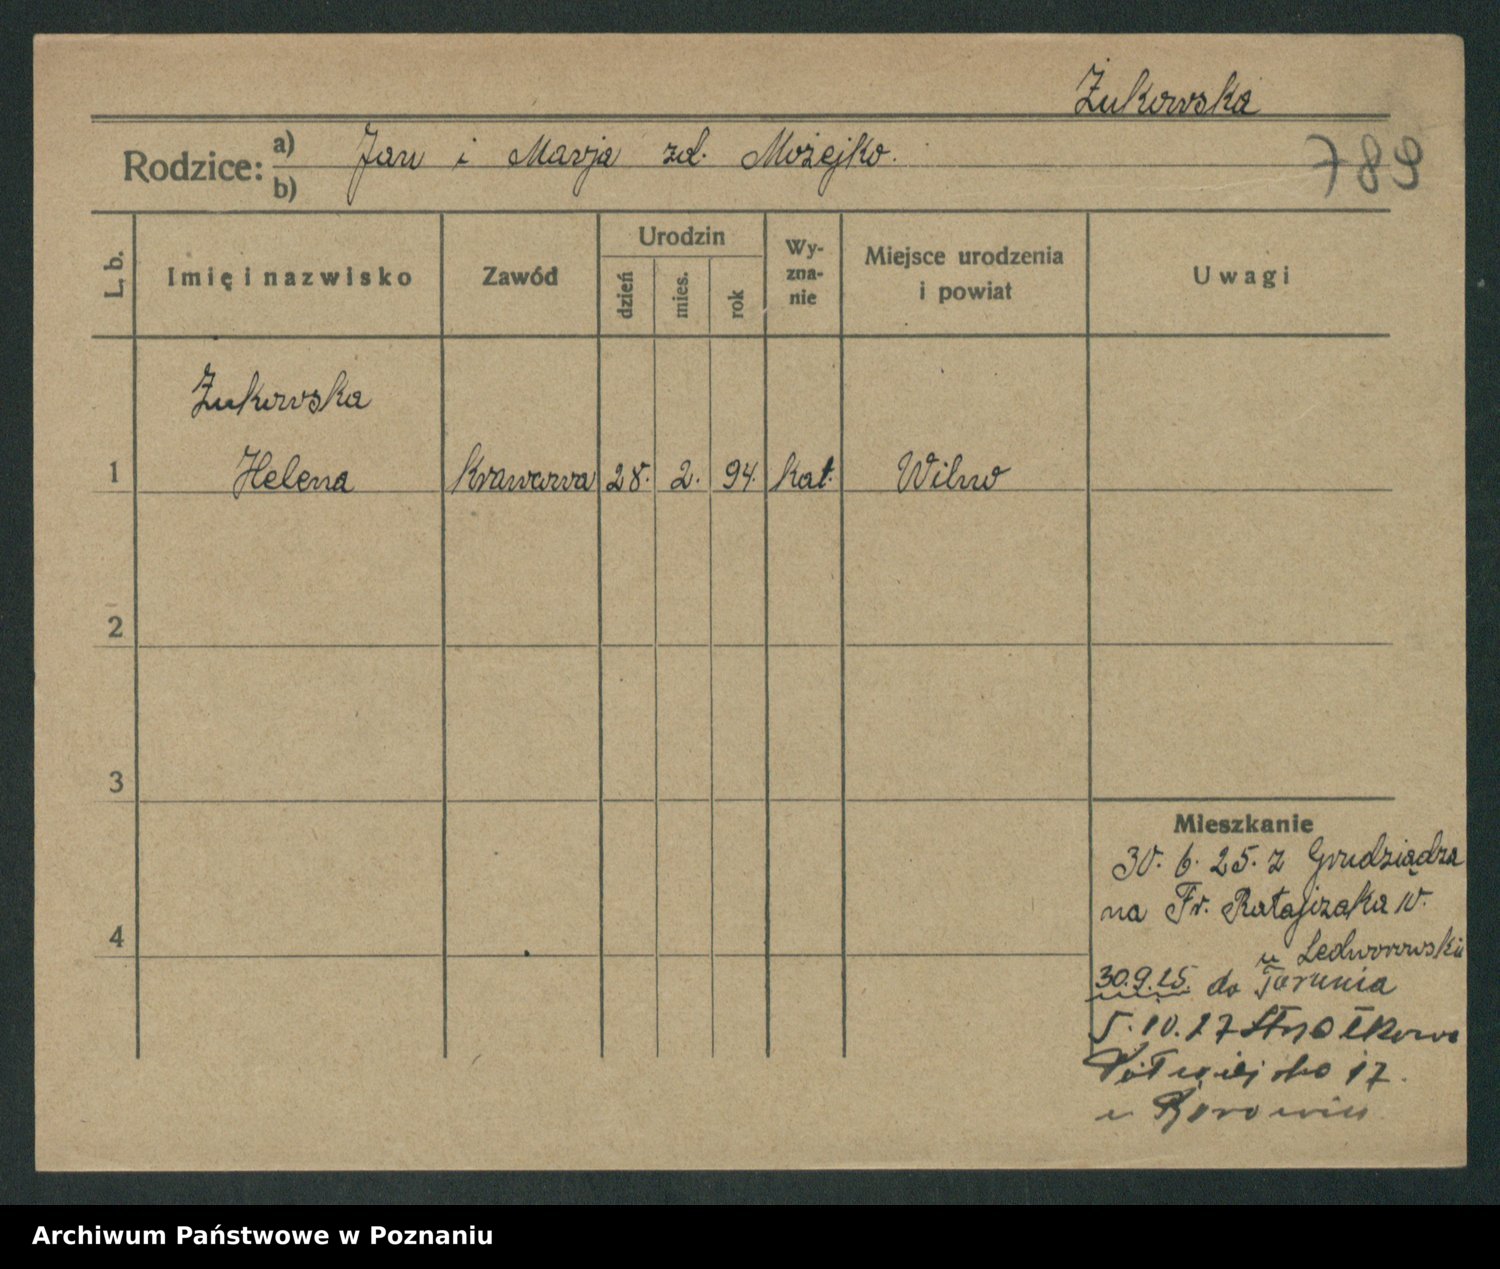 Żukowska
Rodzice: a) Jan i Marja zd. Możejko.
b)
789
L. b.
Imię i nazwisko
Zawód
Urodzin
dzień
mies.
rok
Wy-
zna-
nie
Miejsce urodzenia
i powiat
Uwagi
Żukowska
1 Helena Krawcowa 28. 2. 94. kat. Wilno
2
3
4
Mieszkanie
30. 6. 25. z Grudziądza
na Fr. Ratajczaka 10.
u
30.9.25. do Torunia
5. 10. 27
Półwiejska 17.
u
Archiwum Państwowe w Poznaniu